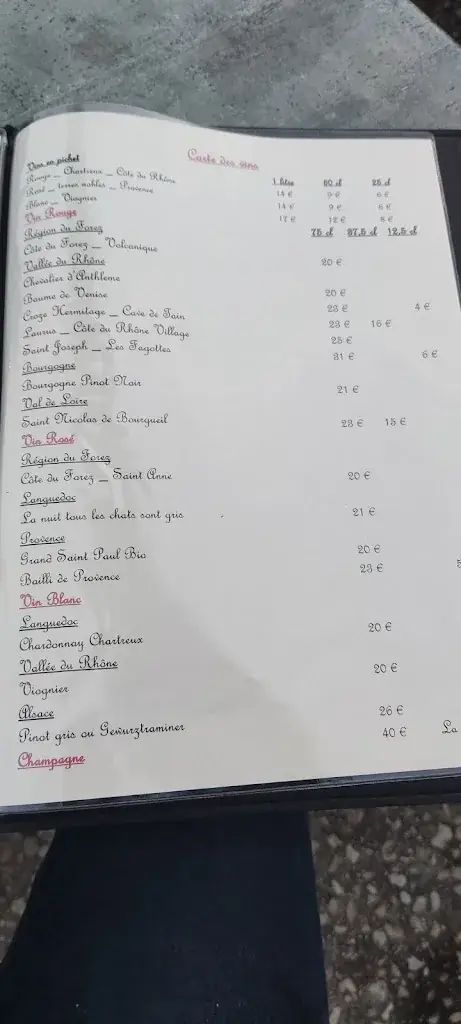 Carte des vins
Vins en pichet 1 litre 50 cl 25 cl
Rouge _ Chartreux _ Côte du Rhône 14 € 9 € 6 €
Rosé _ terres nobles _ Provence 14 € 9 € 6 €
Blanc _ Viognier 17 € 12 € 8 €
Vin Rouge 75 cl 37,5 cl 12,5 cl
Région du Forez
Côte du Forez _ Volcanique 20 €
Vallée du Rhône
Chevalier d'Anthleme 20 €
Baume de Venise 23 € 4 €
Croze Hermitage _ Cave de Tain 23 € 16 €
Laurus _ Côte du Rhône Village 25 €
Saint Joseph _ Les Fagottes 31 € 6 €
Bourgogne
Bourgogne Pinot Noir 21 €
Val de Loire
Saint Nicolas de Bourgueil 23 € 15 €
Vin Rosé
Région du Forez
Côte du Forez _ Saint Anne 20 €
Languedoc
La nuit tous les chats sont gris 21 €
Provence
Grand Saint Paul Bio 20 €
Bailli de Provence 23 € 5
Vin Blanc
Languedoc
Chardonnay Chartreux 20 €
Vallée du Rhône
Viognier 20 €
Alsace
Pinot gris ou Gewurztraminer 26 €
Champagne 40 € La